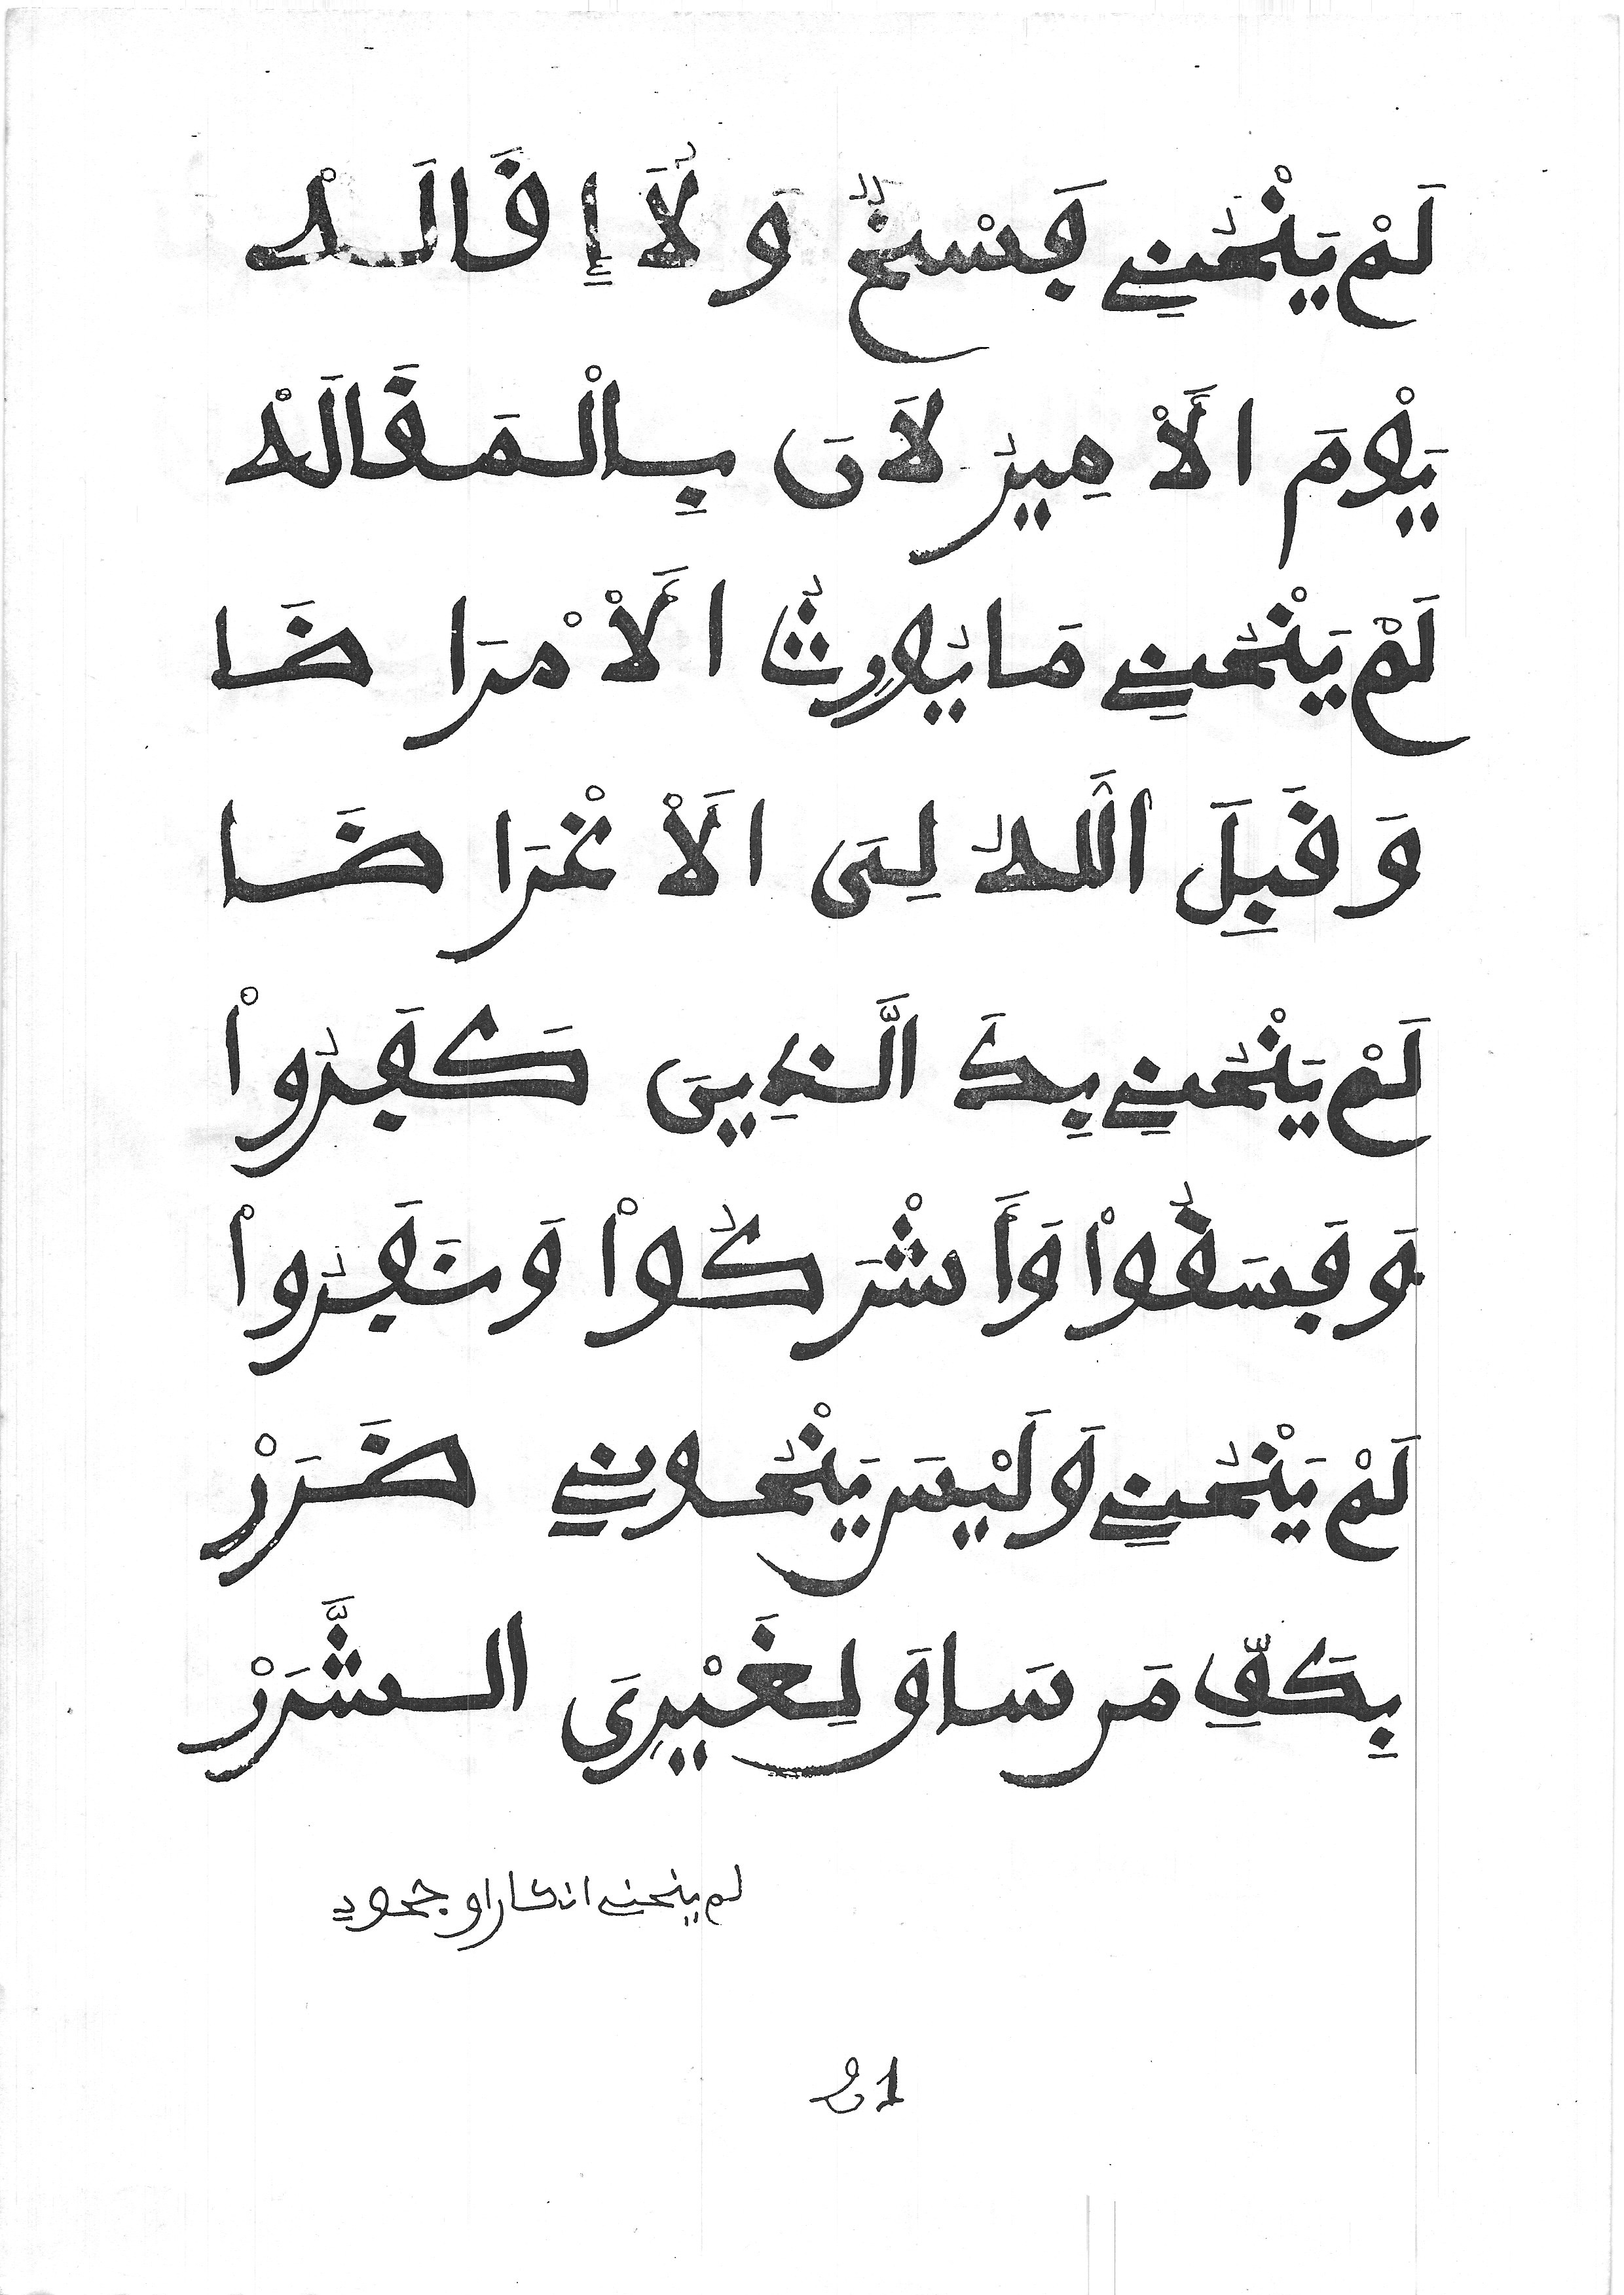 لَمْ يَنْحُنِے فَسْخٌ وَلَا إِقَالَهْ
يَوْمَ الَأْمِيرُ لَانَ بِالْمَقَالَهْ
لَمْ يَنْحُنِے مَا يُورِثُ الَأْمْرَاضَا
وَقَبِلَ اللَّهُ لِىَ الَأْغْرَاضَا
لَمْ يَنْحُنِے بِكَ الَّذِينَ كَفَرُواْ
وَفَسَقُواْ وَأَشْرَكُواْ وَنَفَرُواْ
لَمْ يَنْحُنِے وَلَيْسَ يَنْحُونِے ضَرَرْ
بِكَفِّ مَن سَاقَ لِغَيْرِىَ الشَّرَرْ
لم ينحنے انكار او جحود
21